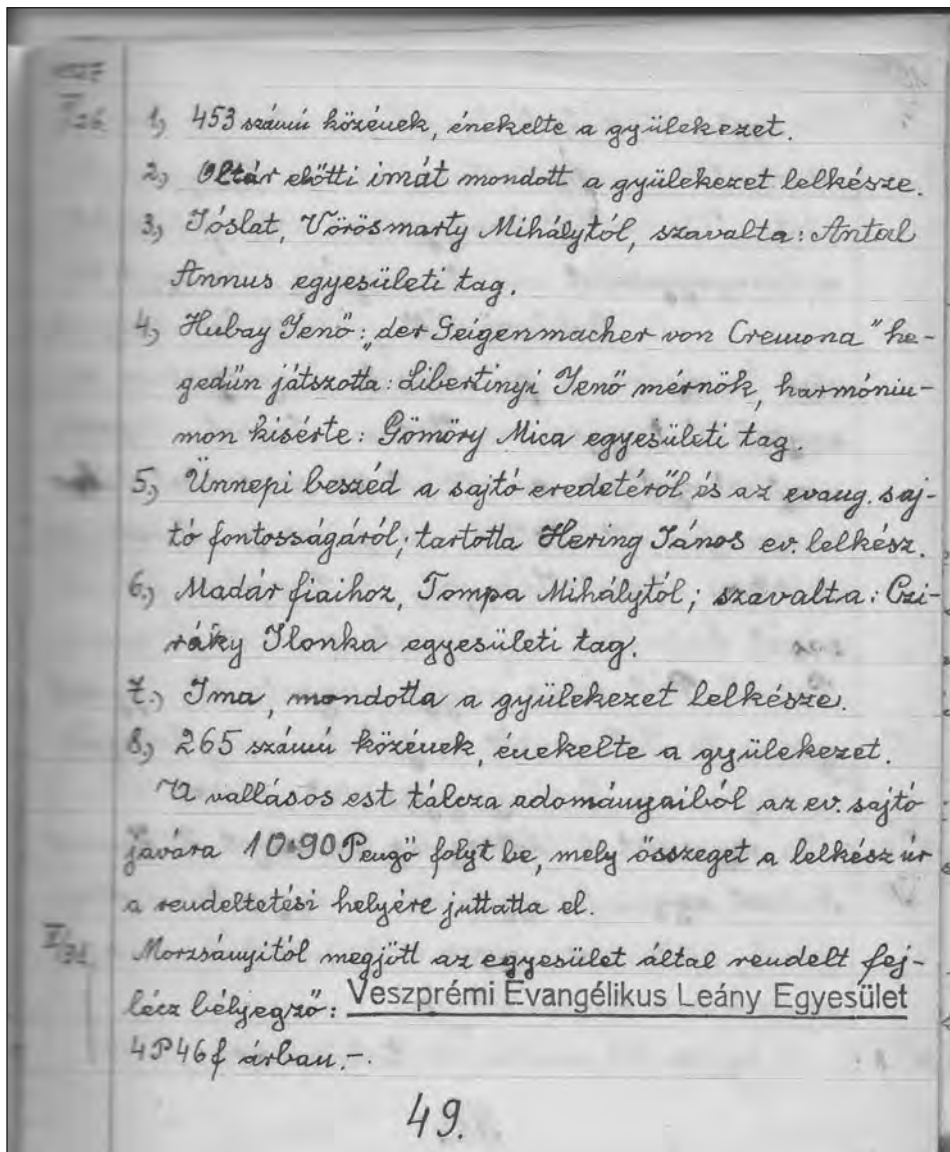 1927
V/26.
1,) 453 számú közének, énekelte a gyülekezet.
2,) Oltár előtti imát mondott a gyülekezet lelkésze.
3,) Jóslat, Vörösmarty Mihálytól, szavalta: Antal
Annus egyesületi tag.
4,) Hubay Jenő: „der Geigenmacher von Cremona" he-
gedűn játszotta: Libertinyi Jenő mérnök, harmóniu-
mon kisérte: Gömöry Mica egyesületi tag.
5,) Ünnepi beszéd a sajtó eredetéről és az evang. saj-
tó fontosságáról; tartotta Hering János ev. lelkész.
6,) Madár fiaihoz, Tompa Mihálytól; szavalta: Czi-
ráky Ilonka egyesületi tag.
7.) Ima, mondotta a gyülekezet lelkésze.
8,) 265 számú közének, énekelte a gyülekezet.
A vallásos est tálcza adományaiból az ev. sajtó
javára 10·90 Pengő folyt be, mely összeget a lelkész úr
a rendeltetési helyére juttatta el.
V/31. Morzsányitól megjött az egyesület által rendelt fej-
lécz bélyegző: Veszprémi Evangélikus Leány Egyesület
4P46f árban.-.
49.